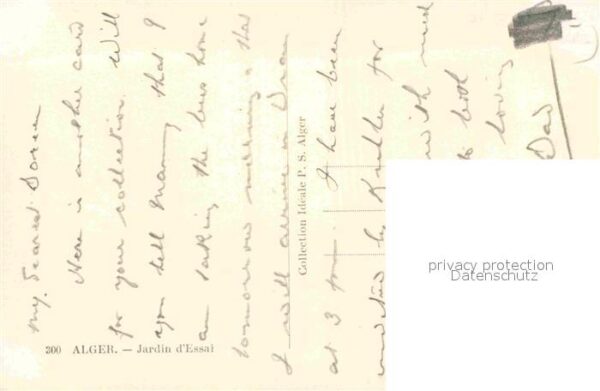 My Dearest Doreen
Here is another card
for your collection. Will
you tell Mammy that I
am taking the bus home
tomorrow morning & that
I will arrive in Oran
at 3 pm. I have been
invited by for
with
to both
loving
Dad
Collection Idéale P. S. Alger
300 ALGER. — Jardin d'Essai
privacy protection
Datenschutz